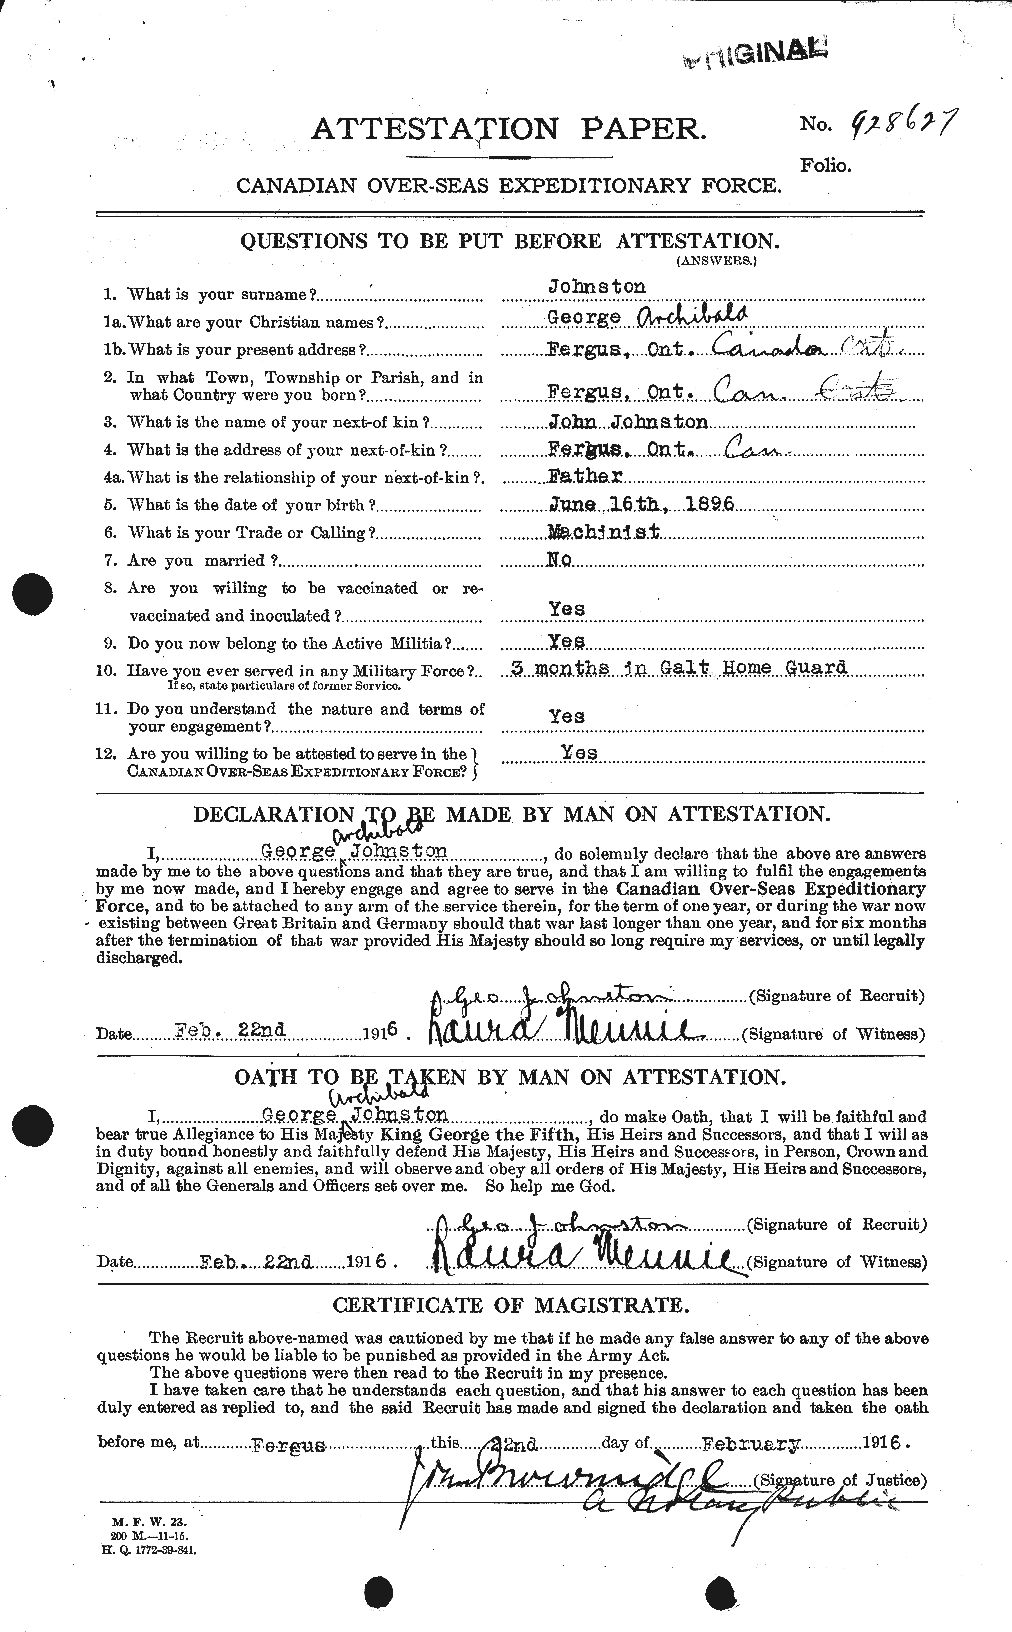 ORIGINAL
ATTESTATION PAPER.
No. 928627
Folio.
CANADIAN OVER-SEAS EXPEDITIONARY FORCE.
QUESTIONS TO BE PUT BEFORE ATTESTATION.
(ANSWERS.)
1. What is your surname? Johnston
1a. What are your Christian names? George Archibald
1b. What is your present address? Fergus, Ont. Canada Ont.
2. In what Town, Township or Parish, and in
what Country were you born? Fergus, Ont. Can.
3. What is the name of your next-of kin? John Johnston
4. What is the address of your next-of-kin? Fergus, Ont. Can.
4a. What is the relationship of your next-of-kin? Father
5. What is the date of your birth? June 16th, 1896
6. What is your Trade or Calling? Machinist
7. Are you married? No
8. Are you willing to be vaccinated or re-
vaccinated and inoculated? Yes
9. Do you now belong to the Active Militia? Yes
10. Have you ever served in any Military Force? 3 months in Galt Home Guard
If so, state particulars of former Service.
11. Do you understand the nature and terms of
your engagement? Yes
12. Are you willing to be attested to serve in the
CANADIAN OVER-SEAS EXPEDITIONARY FORCE? Yes
DECLARATION TO BE MADE BY MAN ON ATTESTATION.
Archibald
I, George Johnston, do solemnly declare that the above are answers
made by me to the above questions and that they are true, and that I am willing to fulfil the engagements
by me now made, and I hereby engage and agree to serve in the Canadian Over-Seas Expeditionary
Force, and to be attached to any arm of the service therein, for the term of one year, or during the war now
existing between Great Britain and Germany should that war last longer than one year, and for six months
after the termination of that war provided His Majesty should so long require my services, or until legally
discharged.
Geo Johnston (Signature of Recruit)
Date Feb. 22nd 1916. Laura Mennie (Signature of Witness)
OATH TO BE TAKEN BY MAN ON ATTESTATION.
Archibald
I, George Johnston, do make Oath, that I will be faithful and
bear true Allegiance to His Majesty King George the Fifth, His Heirs and Successors, and that I will as
in duty bound honestly and faithfully defend His Majesty, His Heirs and Successors, in Person, Crown and
Dignity, against all enemies, and will observe and obey all orders of His Majesty, His Heirs and Successors,
and of all the Generals and Officers set over me. So help me God.
Geo Johnston (Signature of Recruit)
Date Feb. 22nd 1916. Laura Mennie (Signature of Witness)
CERTIFICATE OF MAGISTRATE.
The Recruit above-named was cautioned by me that if he made any false answer to any of the above
questions he would be liable to be punished as provided in the Army Act.
The above questions were then read to the Recruit in my presence.
I have taken care that he understands each question, and that his answer to each question has been
duly entered as replied to, and the said Recruit has made and signed the declaration and taken the oath
before me, at Fergus this 22nd day of February 1916.
(Signature of Justice)
A Notary Public
M. F. W. 23.
200 M.—11-15.
H. Q. 1772-39-841.